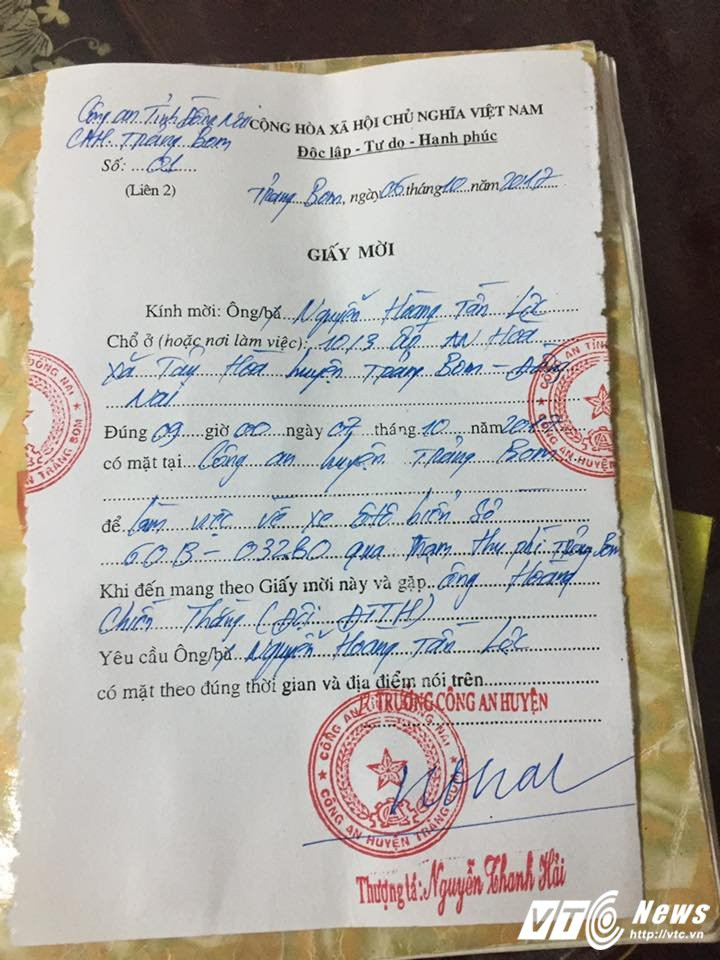 Công an Tỉnh Đồng Nai
CỘNG HÒA XÃ HỘI CHỦ NGHĨA VIỆT NAM
CAH. Trảng Bom
Độc lập - Tự do - Hạnh phúc
Số: 01
(Liên 2)
Trảng Bom, ngày 06 tháng 10 năm 2017
GIẤY MỜI
Kính mời: Ông/bà Nguyễn Hoàng Tấn Lộc
Chổ ở (hoặc nơi làm việc): 10/3 ấp AN Hoà
xã Tây Hoà huyện Trảng Bom - Đồng
Nai
Đúng 09 giờ 00 ngày 07 tháng 10 năm 2017
có mặt tại Công an huyện Trảng Bom
để làm việc về xe ôtô biển số
60B - 03280 qua trạm thu phí Trảng Bom
Khi đến mang theo Giấy mời này và gặp ông Hoàng
Chiến Thắng (Đội ĐTTH)
Yêu cầu Ông/bà Nguyễn Hoàng Tấn Lộc
có mặt theo đúng thời gian và địa điểm nói trên
TRƯỞNG CÔNG AN HUYỆN
CÔNG AN HUYỆN TRẢNG BOM
Thượng tá: Nguyễn Thanh Hải
ĐỒNG NAI
AN TRẢNG BOM
CÔNG AN TỈNH
CÔNG AN HUYỆN
VTC News
http://vtc.vn